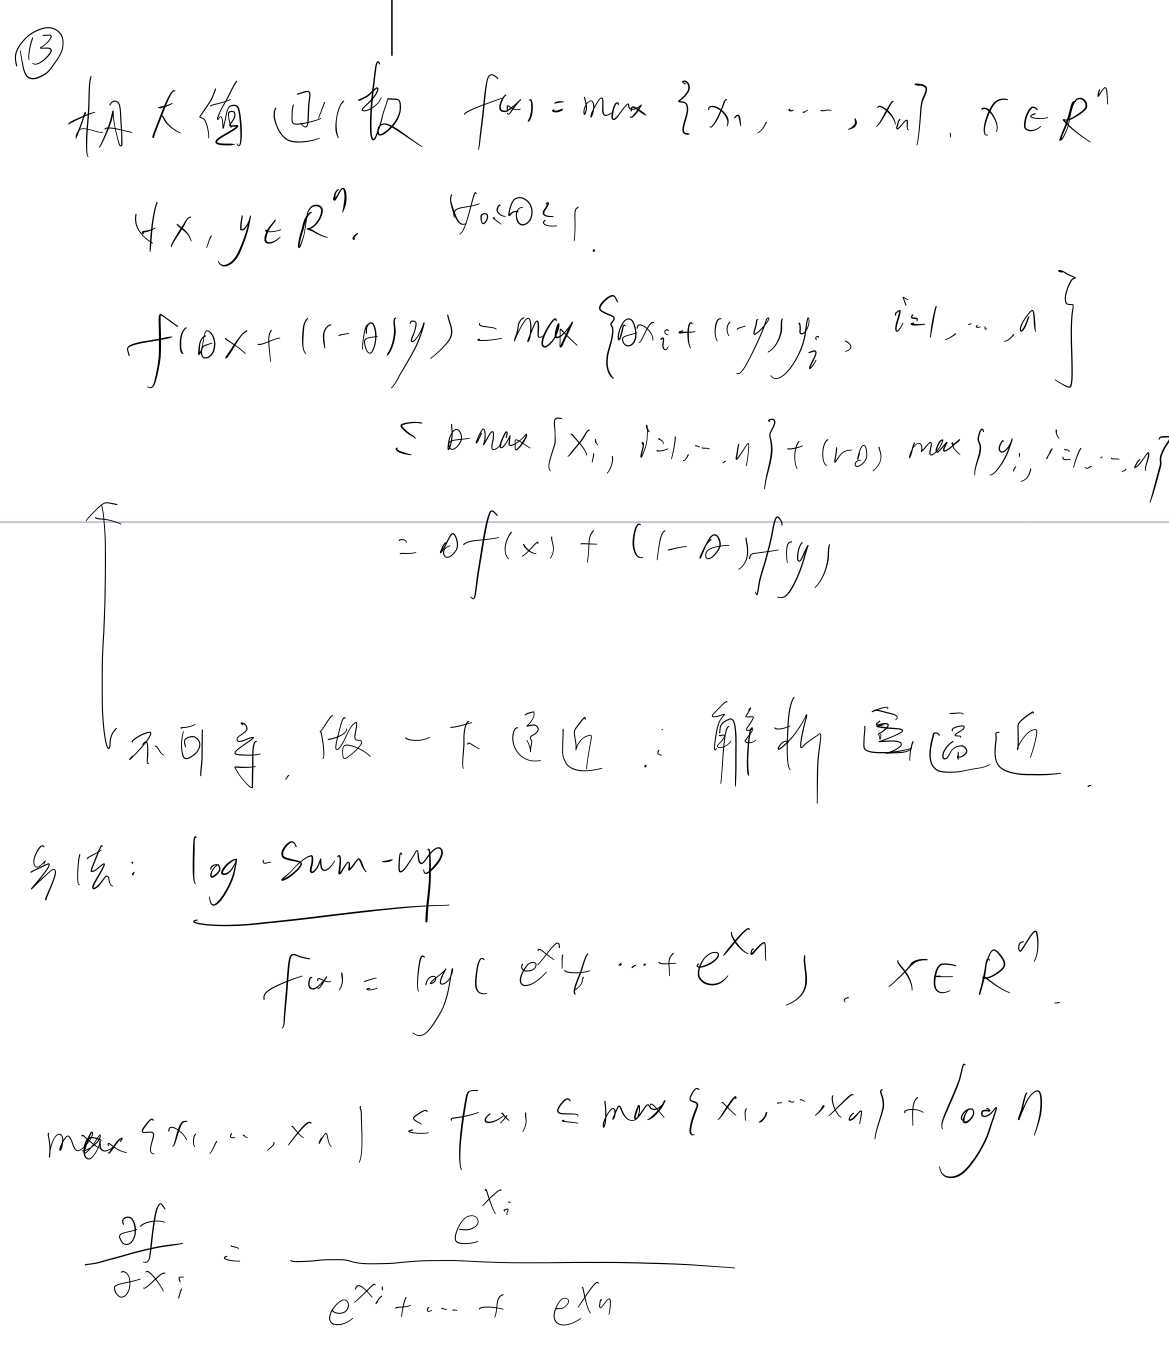 ⑬
极大值函数 f(x) = max {x₁, ⋯, xₙ}. x ∈ Rⁿ
∀x, y ∈ Rⁿ. ∀0≤θ≤1.
f(θx + (1-θ)y) = max {θxᵢ + (1-y)yᵢ, i=1, ⋯, n}
≤ θmax {xᵢ, i=1, ⋯, n} + (1-θ) max {yᵢ, i=1, ⋯, n}
= θf(x) + (1-θ)f(y)
不可导. 做一下逼近: 解析逼近.
方法: log-sum-up
f(x) = log( e^x₁ + ⋯ + e^xₙ ). x ∈ Rⁿ.
max {x₁, ⋯, xₙ} ≤ f(x) ≤ max {x₁, ⋯, xₙ} + log n
∂f/∂xᵢ = e^xᵢ / (e^xᵢ + ⋯ + e^xₙ)